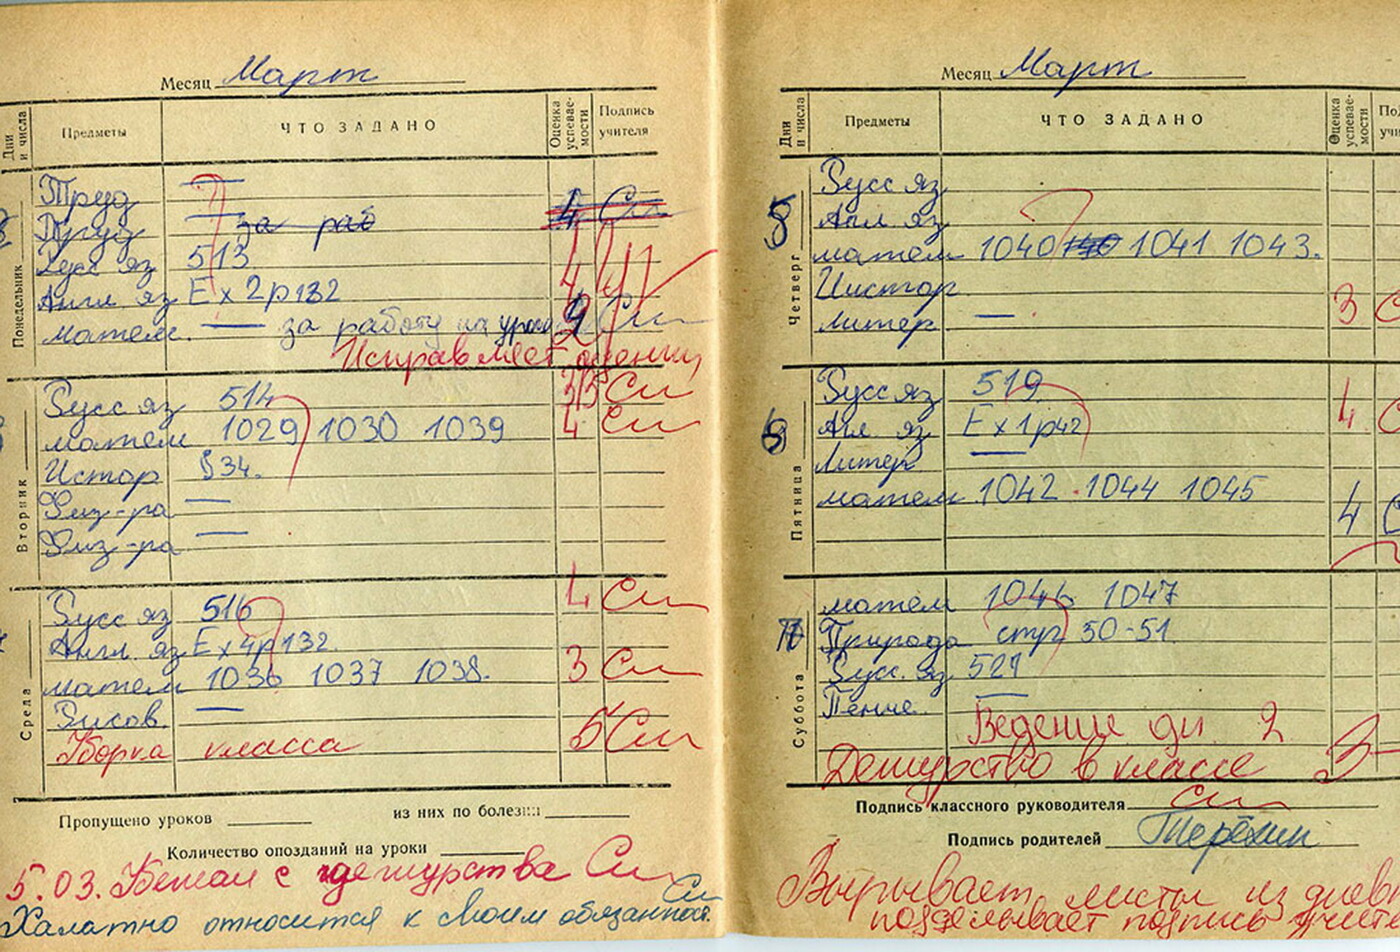 Месяц Март
Дни и числа Предметы ЧТО ЗАДАНО Оценка успевае-мости Подпись учителя
Понедельник
Труд —
Труд — за раб 4 См
Русс яз 513 4
Англ яз Ex 2 p 132
матем. — за работу на уроке 2 См
Исправляет оценки
Вторник
Русс яз 514 3/3 См
матем 1029 1030 1039 4 См
Истор § 34.
Физ-ра —
Физ-ра —
Среда
Русс яз 516 4 См
Англ яз Ex 4 p 132
матем 1036 1037 1038. 3 См
Рисов. —
Уборка класса 5 См
Пропущено уроков из них по болезни
Количество опозданий на уроки
5.03. Бежал с дежурства См
Халатно относится к своим обязанност. См
Месяц Март
Дни и числа Предметы ЧТО ЗАДАНО Оценка успевае-мости По учи
5 Четверг
Русс яз
Англ яз
матем 1040 1041 1043.
Истор 3 С
литер —
6 Пятница
Русс яз 519 4 С
Агл. яз Ex 1 p 42
Литер —
матем 1042 1044 1045 4 С
Суббота
матем 1046 1047
Природа стр 50-51
Русс. яз 521
Пение. —
Ведение дн 2
Дежурство в классе 3-
Подпись классного руководителя См
Подпись родителей Терёхин
Вырывает листы из днев
подделывает подпись учите